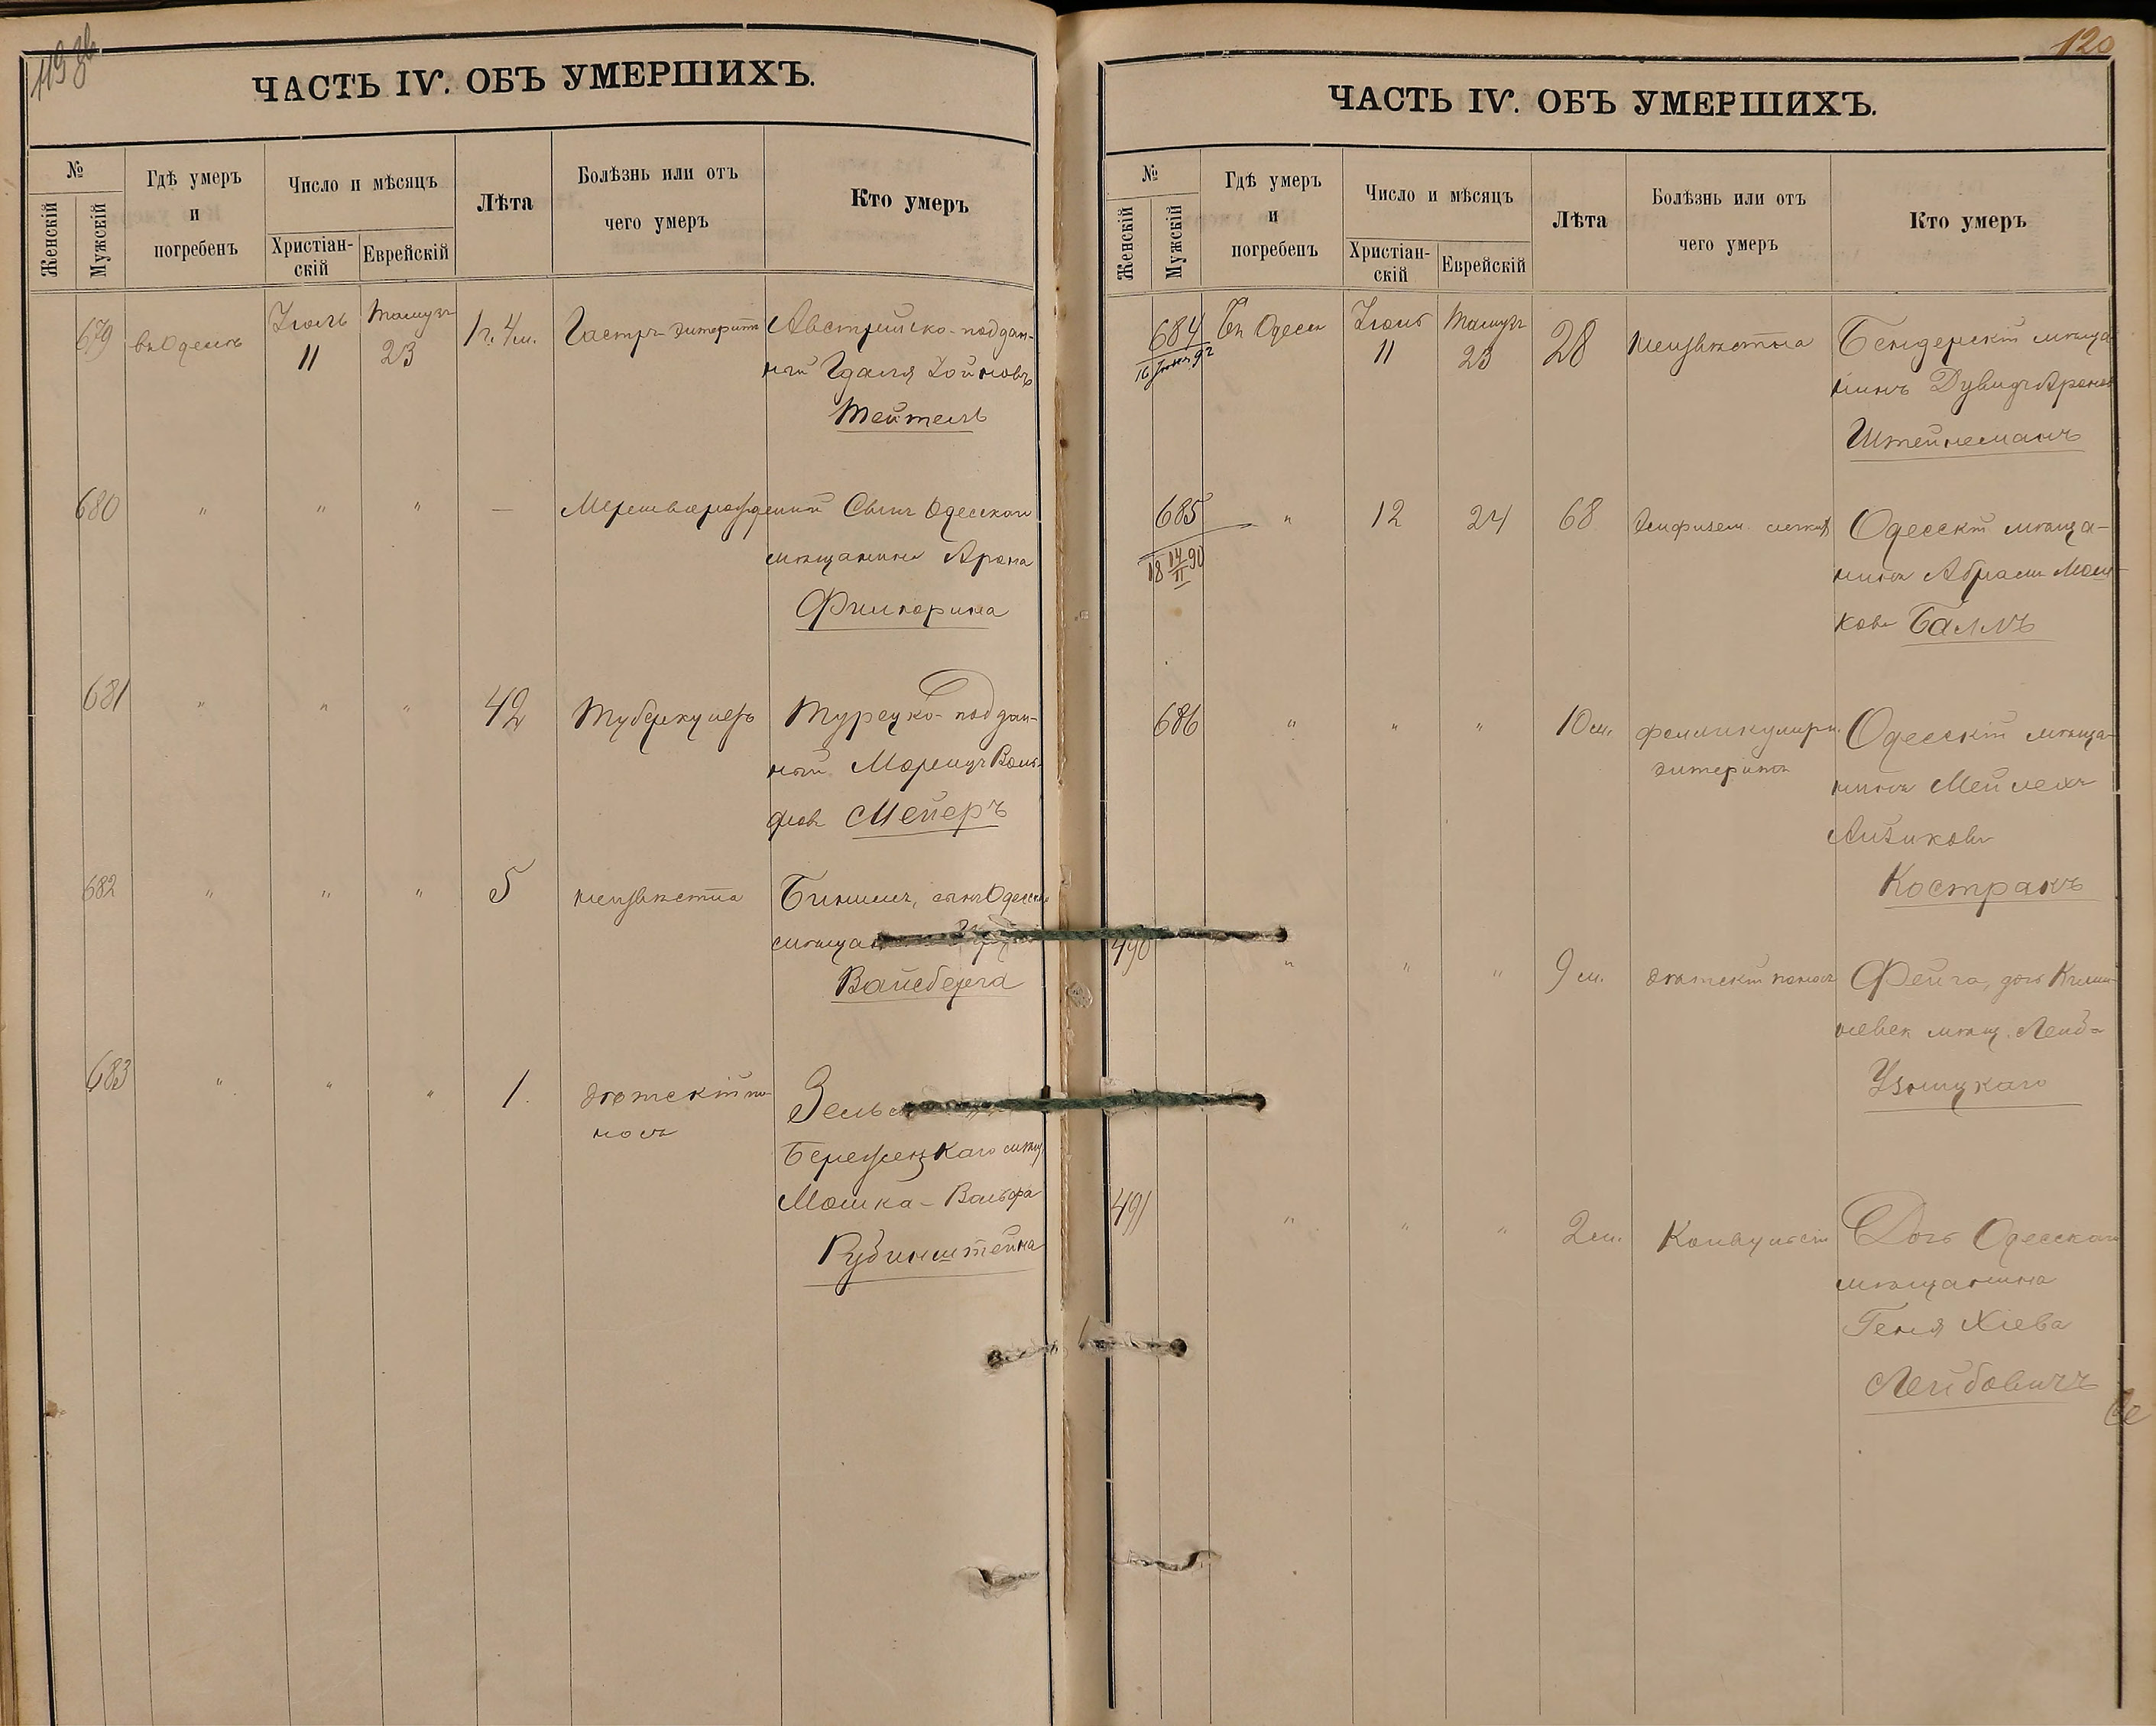 119 об
ЧАСТЬ IV. ОБЪ УМЕРШИХЪ.
№
Женскій
Мужскій
Гдѣ умеръ
и
погребенъ
Число и мѣсяцъ
Христіан-
скій
Еврейскій
Лѣта
Болѣзнь или отъ
чего умеръ
Кто умеръ
679 въ Одессѣ Іюль Тамузъ 1 г. 4 м. Гастръ-энтеритъ Австрійско-поддан-
11 23 ный Гдаля
Тейтель
680 " " " — Мертворожденный Сынъ Одесского
мѣщанина Арона
681 " " " 42 Туберкулезъ Турецко-поддан-
ный Морицъ Воль-
фовъ Мейеръ
682 " " " 5 неизвѣстна сынъ Одесск
мѣщан
Вайсберга
683 " " " 1. дѣтскій по-
носъ
Бережецкаго мѣщ.
Мошка-Вольфа
Рубинштейна
120
ЧАСТЬ IV. ОБЪ УМЕРШИХЪ.
№
Женскій
Мужскій
Гдѣ умеръ
и
погребенъ
Число и мѣсяцъ
Христіан-
скій
Еврейскій
Лѣта
Болѣзнь или отъ
чего умеръ
Кто умеръ
684 Въ Одессѣ Іюль Тамузъ 28 неизвѣстна Бендерскій мѣща-
11 23 нинъ Дувидъ Аронов
Штейнеманъ
685 " 12 24 68 Эмфизем. легкихъ Одесскій мѣща-
нинъ Абрамъ Мош-
ковъ Баллъ
686 " " " 10 м. фолликулярн. Одесскій мѣща-
энтеритъ
нинъ Мейлехъ
Айзиковъ
Костракъ
490 " " " 9 м. дѣтскій поносъ Фейга, дочь Киши-
невск мѣщ. Лейб-
491 " " " 2 м. Конвульсіи Дочь Одесскаго
мѣщанина
Геня Хіева
Лейбовичъ